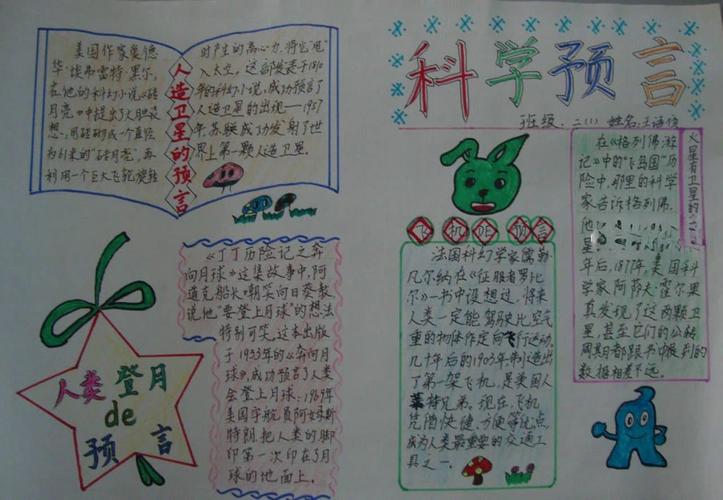 科学预言
班级：二(1) 姓名：王语
美国作家爱德
华·埃弗雷特·黑尔，
在他的科幻小说《砖
月亮》中提出了大胆设
想：用砖砌成一个直径
为61米的“砖月亮”，再
利用一个巨大飞轮旋转
人造卫星的预言
时产生的离心力，将它“甩”
入太空。这部发表于18
年的科幻小说，成功预言了
人造卫星的出现——1957
年，苏联成功发射了世
界上第一颗人造卫星。
人类登月
de
预言
《丁丁历险记之奔
向月球》这集故事中，阿
道克船长嘲笑向日葵教
说他“要登上月球”的想法
特别可笑。这本出版
于1953年的《奔向月
球》，成功预言了人类
会登上月球：1969年
美国宇航员阿姆斯
特朗，把人类的脚
印第一次印在了月
球的地面上。
飞机DE预言
法国科幻学家儒勒·
凡尔纳在《征服者罗比
尔》一书中设想过，将来
人类一定能驾驶比空气
重的物体作定向飞行运动。
几十年后的1903年，制造出
了第一架飞机，是美国人
莱特兄弟。现在，飞机
凭借快捷、方便等优点，
成为人类最重要的交通工
具之一。
火星有卫星的
在《格列佛游
记》中的“飞岛国”历
险中，那里的科学
家告诉格列佛，
他
星
年后，1877年，美国科
学家阿萨夫·霍尔果
真发现了这两颗卫
星，甚至它们的公转
周期都跟书中提到的
数据相差不远。